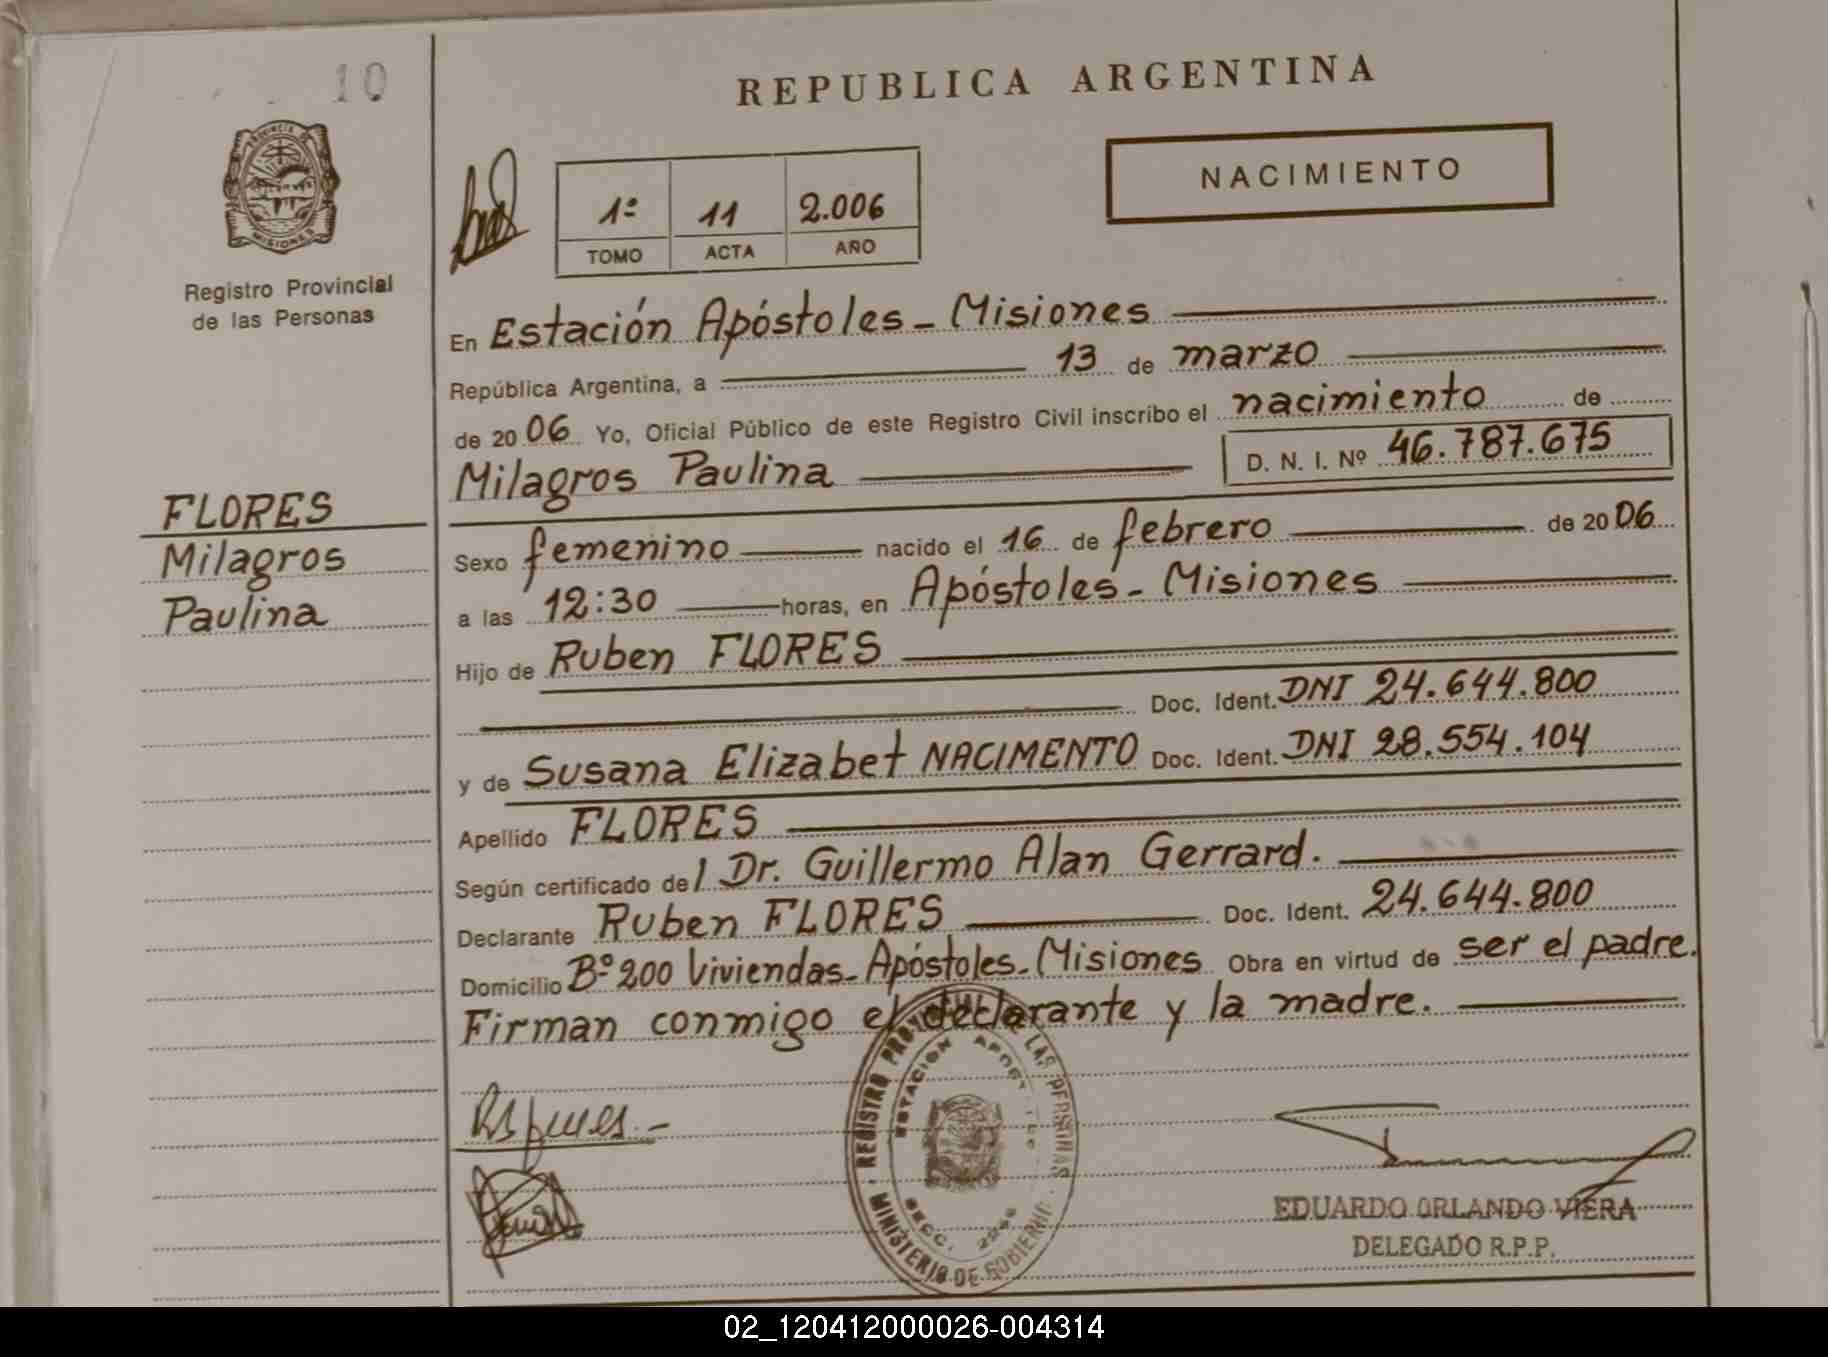 10
REPUBLICA ARGENTINA
NACIMIENTO
PROVINCIA DE
MISIONES
Registro Provincial
de las Personas
1º 11 2.006
TOMO ACTA AÑO
En Estación Apóstoles - Misiones
República Argentina, a 13 de marzo
de 2006 Yo, Oficial Público de este Registro Civil inscribo el nacimiento de
Milagros Paulina D. N. I. Nº 46.787.675
FLORES
Milagros
Paulina
Sexo femenino nacido el 16 de febrero de 2006
a las 12:30 horas, en Apóstoles - Misiones
Hijo de Ruben FLORES
Doc. Ident. DNI 24.644.800
y de Susana Elizabet NACIMENTO Doc. Ident. DNI 28.554.104
Apellido FLORES
Según certificado del Dr. Guillermo Alan Gerrard.
Declarante Ruben FLORES Doc. Ident. 24.644.800
Domicilio Bº 200 Viviendas - Apóstoles - Misiones Obra en virtud de ser el padre.
Firman conmigo el declarante y la madre.
REGISTRO PROV. DE LAS PERSONAS
ESTACION APOSTOLES
SECC.
MINISTERIO DE GOBIERNO
EDUARDO ORLANDO VIERA
DELEGADO R.P.P.
02_120412000026-004314